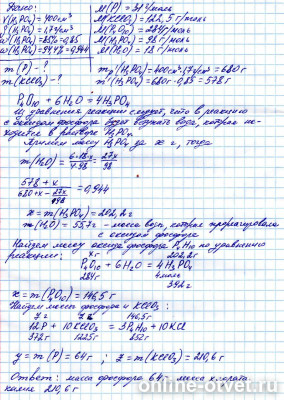 Дано:
V(H₃PO₄) = 400 см³
ρ(H₃PO₄) = 1,7 г/мл
w(H₃PO₄) = 85% = 0,85
w(H₃PO₄) = 94,4% = 0,944
m(P) - ?
m(KClO₃) - ?
M(P) = 31 г/моль
M(KClO₃) = 122,5 г/моль
M(P₄O₁₀) = 284 г/моль
M(H₃PO₄) = 98 г/моль
M(H₂O) = 18 г/моль
m р-р (H₃PO₄) = 400 см³·1,7 г/см³ = 680 г
m(H₃PO₄) = 680 г·0,85 = 578 г
P₄O₁₀ + 6H₂O = 4H₃PO₄
Из уравнения реакции следует, что в реакцию
с оксидом фосфора будет вступать вода, которая на-
ходится в растворе H₃PO₄.
Примем массу H₃PO₄ за x г, тогда
m(H₂O) = 6·18x / 4·98 = 27x / 98
578 + x / 680 + x - 27x/98 = 0,944
x = m(H₃PO₄) = 202,2 г
m(H₂O) = 55,7 г - масса воды, которая прореагировала
с оксидом фосфора
Найдем массу оксида фосфора P₄O₁₀ по уравнению
реакции:
x г 202,2 г
P₄O₁₀ + 6H₂O = 4H₃PO₄
284 г 4 моль
392 г
x = m(P₄O₁₀) = 146,5 г
Найдем массы фосфора и KClO₃:
y г z г 146,5 г
12P + 10KClO₃ = 3P₄O₁₀ + 10KCl
372 г 1225 г 852 г
y = m(P) = 64 г; z = m(KClO₃) = 210,6 г
Ответ: масса фосфора 64 г, масса хлората
калия 210,6 г
online-otvet.ru